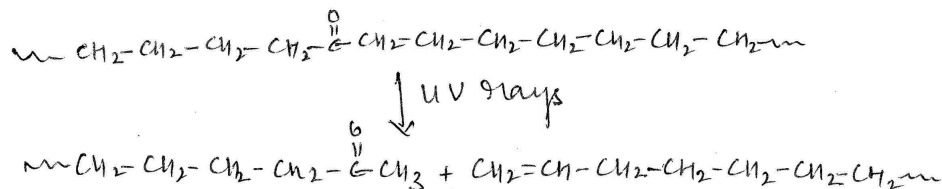 O
~ CH2-CH2-CH2-CH2-C-CH2-CH2-CH2-CH2-CH2-CH2-CH2 ~
↓ UV rays
O
~ CH2-CH2-CH2-CH2-C-CH3 + CH2=CH-CH2-CH2-CH2-CH2-CH2 ~